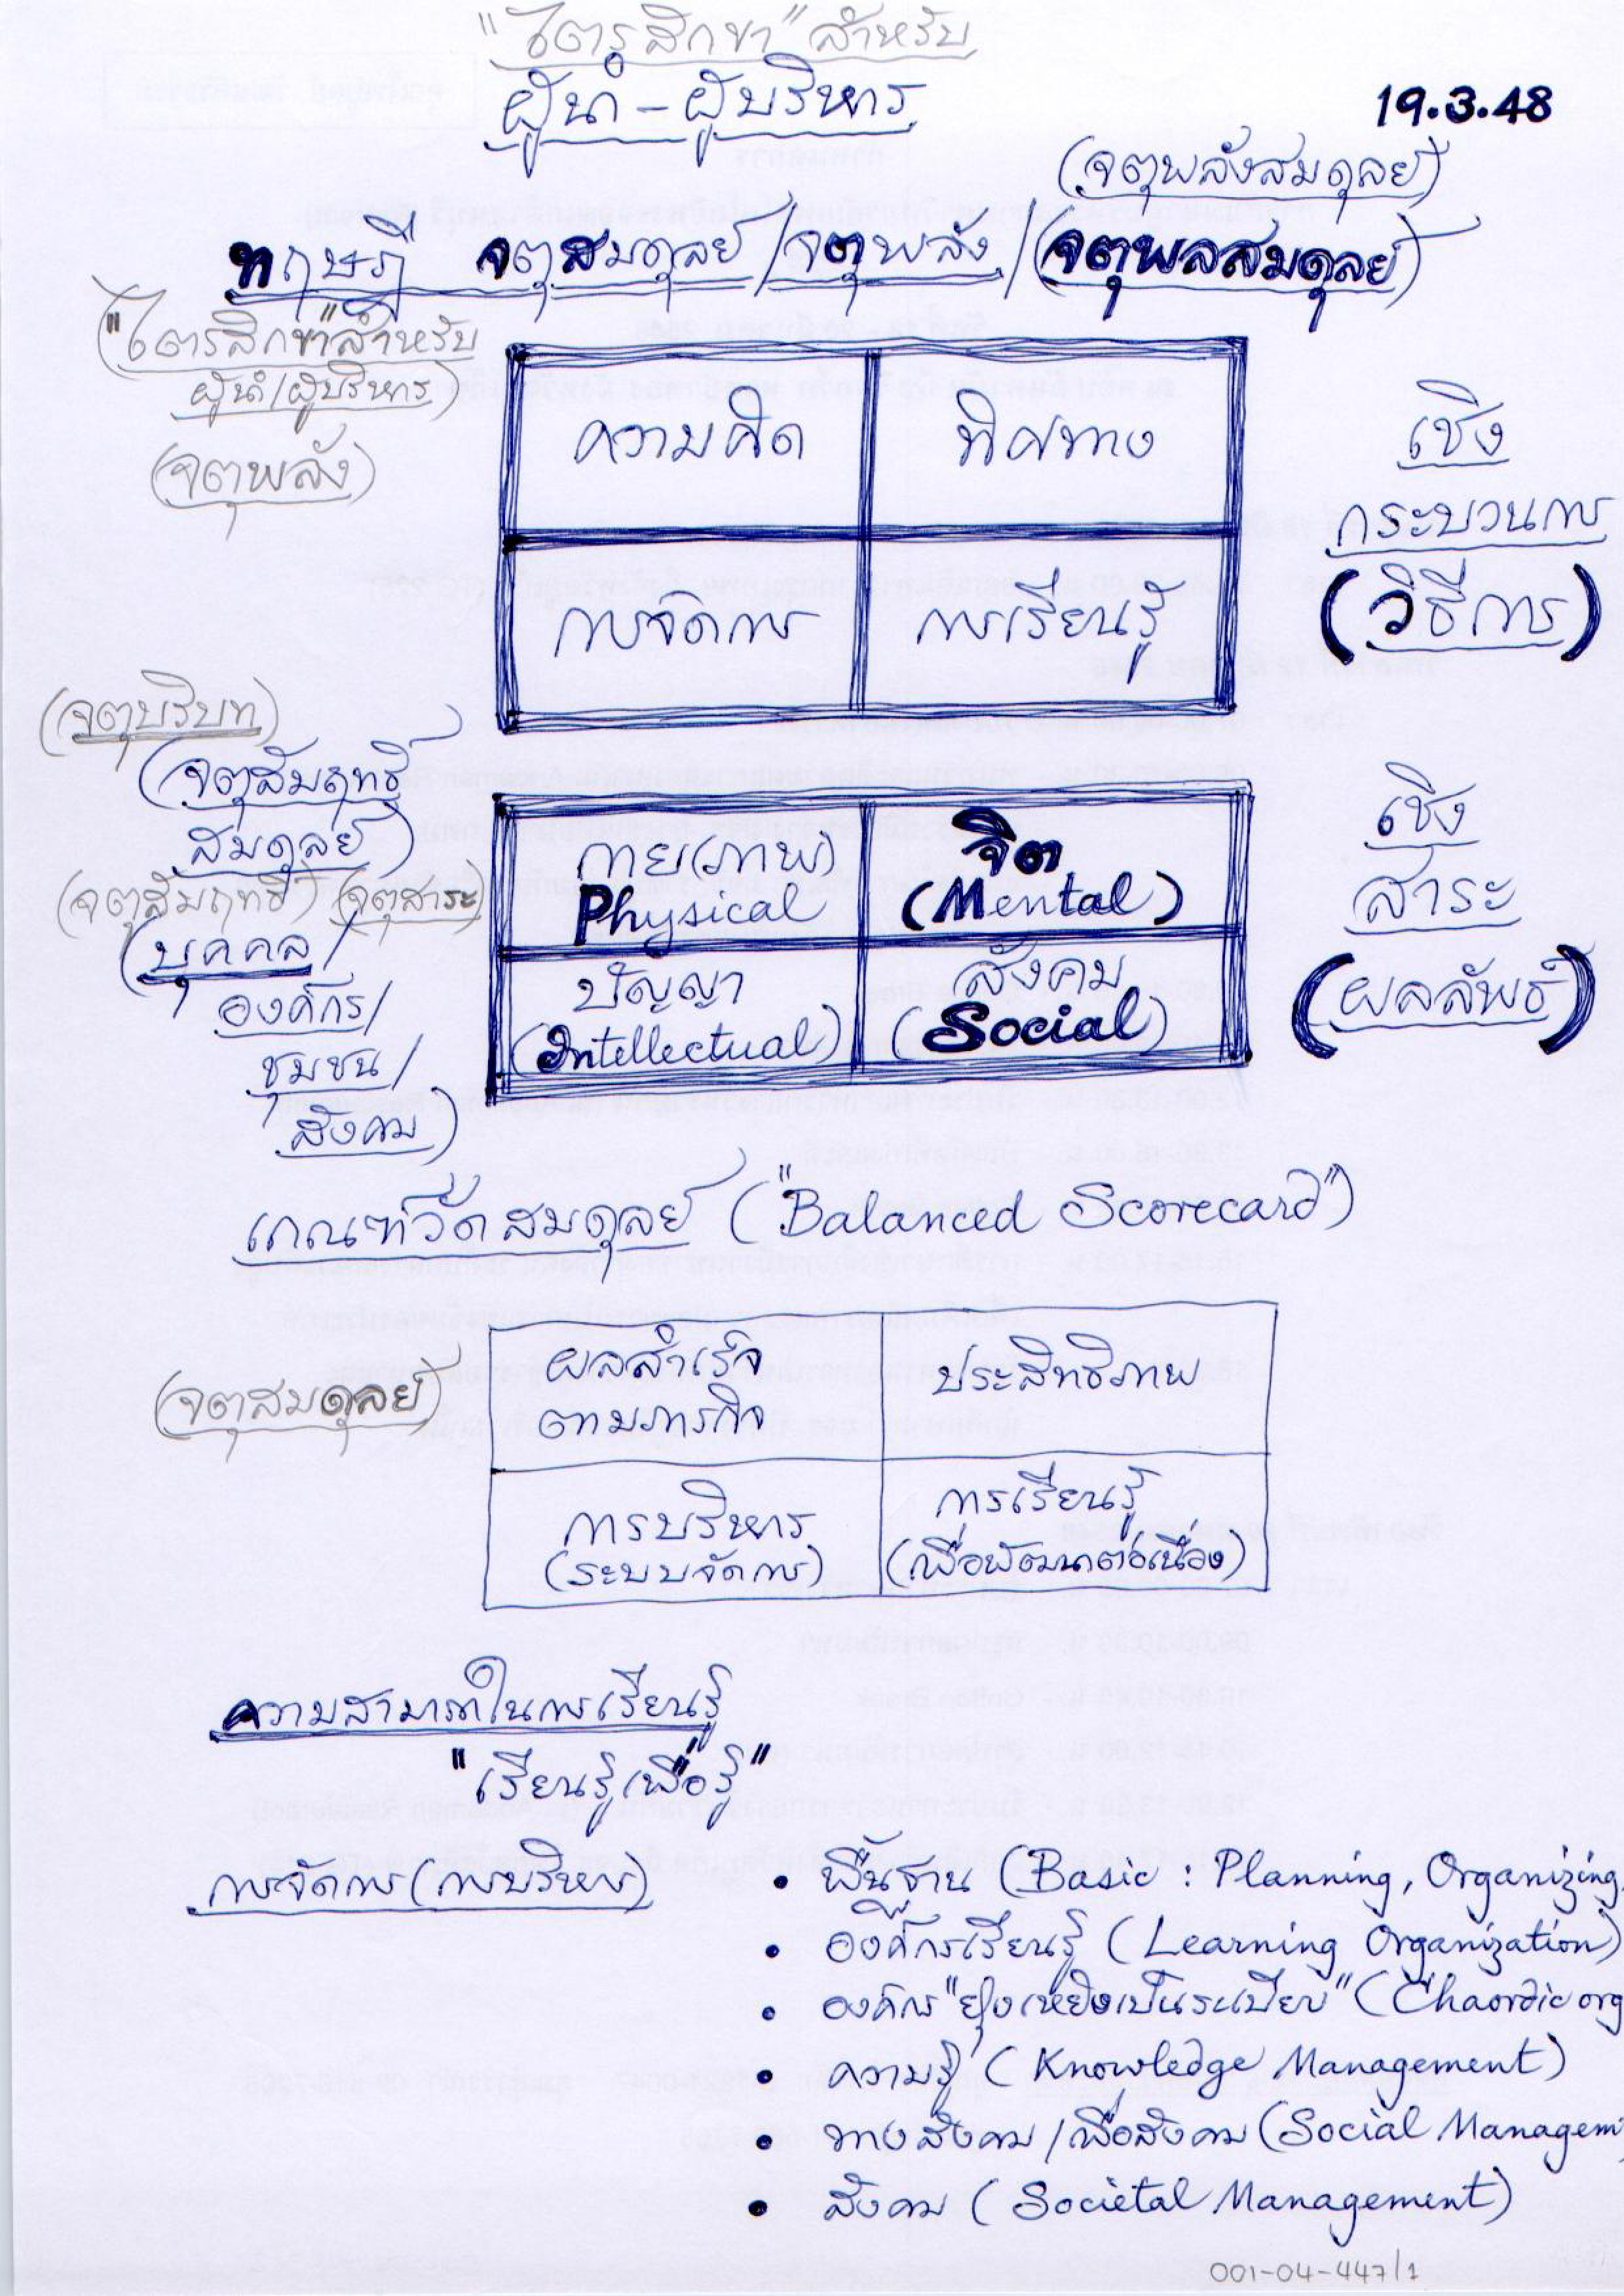 "ไตรสิกขา" สำหรับ
ผู้นำ - ผู้บริหาร
19.3.48
(จตุพลังสมดุลย์)
ทฤษฎี จตุสมดุลย์ / จตุพลัง / (จตุพลสมดุลย์)
("ไตรสิกขา" สำหรับ
ผู้นำ/ผู้บริหาร)
(จตุพลัง)
ความคิด ทิศทาง
การจัดการ การเรียนรู้
เชิง
กระบวนการ
(วิธีการ)
(จตุบริบท)
(จตุสัมฤทธิ์
สมดุลย์)
(จตุสัมฤทธิ์) (จตุสาระ)
(บุคคล/
องค์กร/
ชุมชน/
สังคม)
กาย(ภาพ) จิต
Physical (Mental)
ปัญญา สังคม
(Intellectual) (Social)
เชิง
สาระ
(ผลลัพธ์)
เกณฑ์วัดสมดุลย์ ("Balanced Scorecard")
(จตุสมดุลย์)
ผลสำเร็จ
ตามภารกิจ
ประสิทธิภาพ
การบริหาร
(ระบบจัดการ)
การเรียนรู้
(เพื่อพัฒนาต่อเนื่อง)
ความสามารถในการเรียนรู้
"เรียนรู้เพื่อรู้"
การจัดการ (การบริหาร)
• พื้นฐาน (Basic : Planning, Organizing,
• องค์กรเรียนรู้ (Learning Organization)
• องค์กร "ยุ่งเหยิงเป็นระเบียบ" (Chaordic org
• ความรู้ (Knowledge Management)
• ทางสังคม / เพื่อสังคม (Social Managem
• สังคม (Societal Management)
001-04-447/1